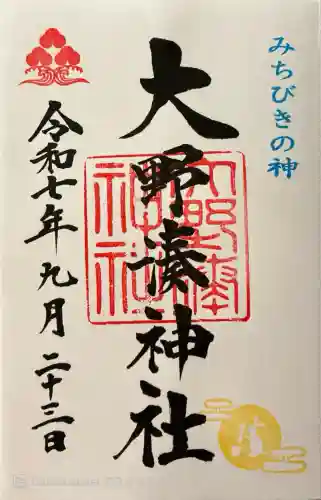 みちびきの神
大野湊神社
大野湊神社
令和七年九月二十三日